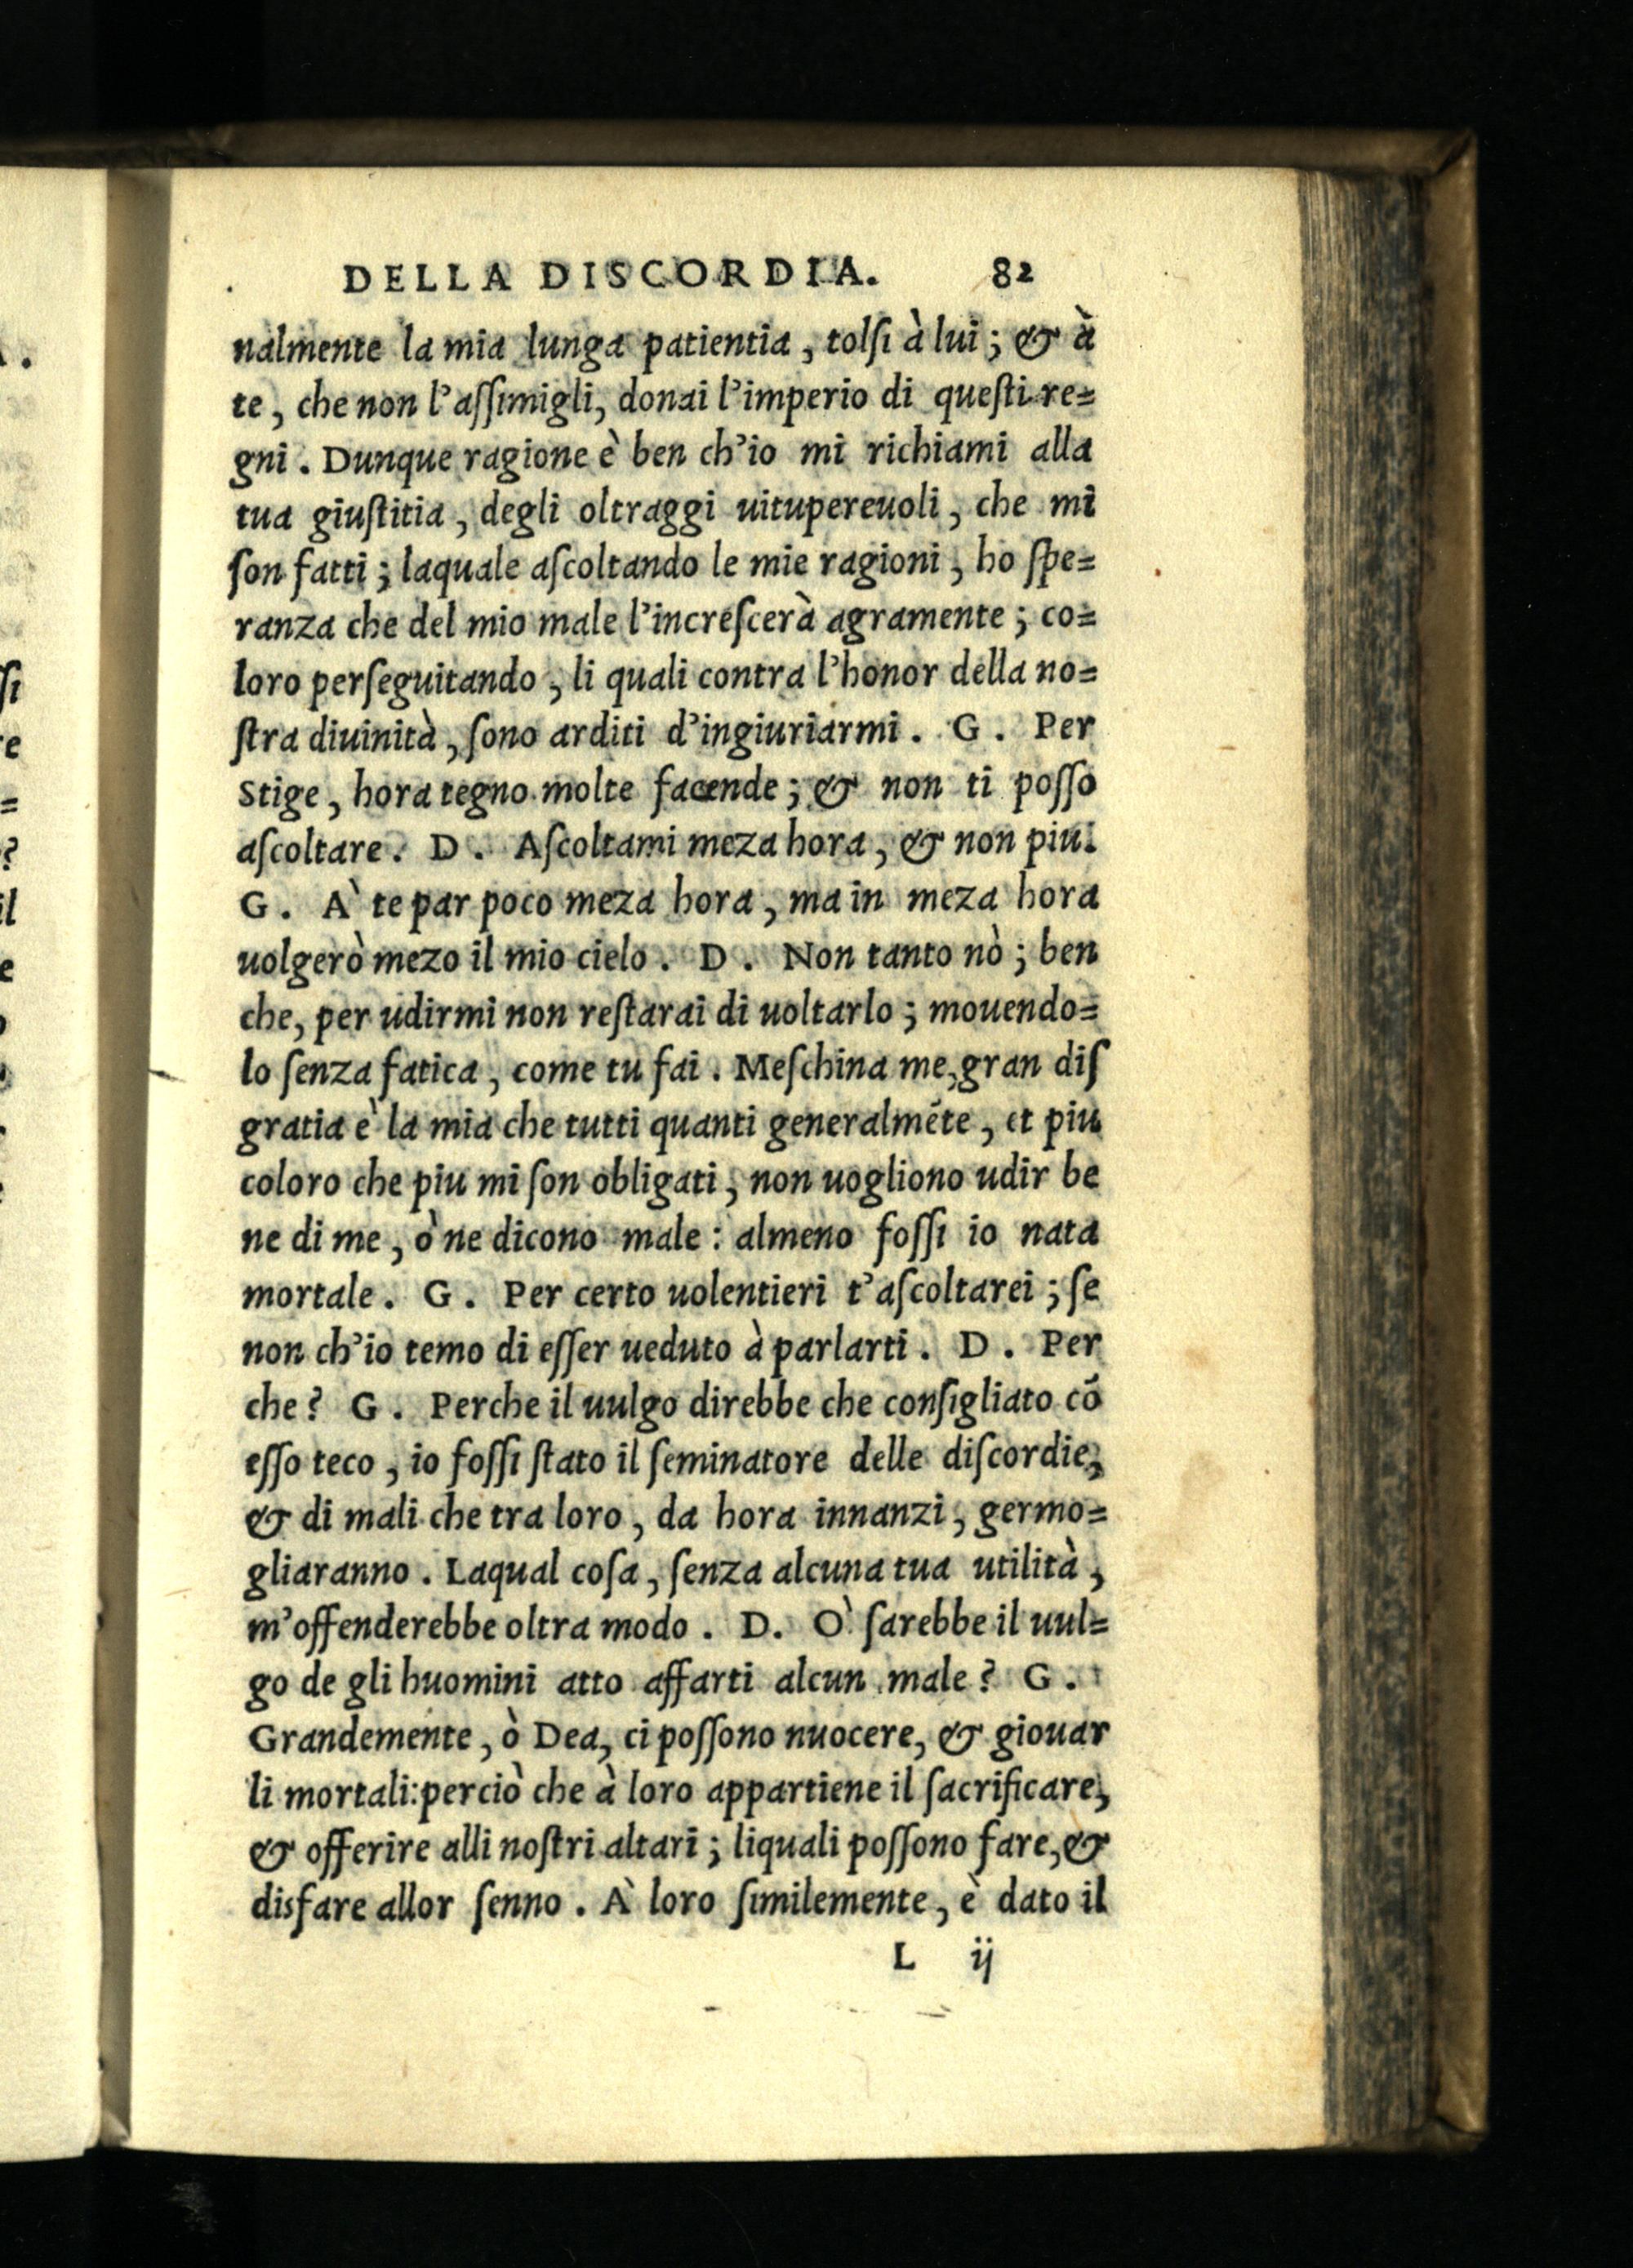 DELLA DISCORDIA. 82
nalmente la mia lunga patientia, tolſi à lui; & à
te, che non l'aſſimigli, donai l'imperio di queſti re=
gni. Dunque ragione è ben ch'io mi richiami alla
tua giuſtitia, degli oltraggi uitupereuoli, che mi
ſon fatti; laquale aſcoltando le mie ragioni, ho ſpe=
ranza che del mio male l'increſcerà agramente; co=
loro perſeguitando, li quali contra l'honor della no=
ſtra diuinità, ſono arditi d'ingiuriarmi. G. Per
Stige, hora tegno molte facende; & non ti poſſo
aſcoltare. D. Aſcoltami meza hora, & non piu.
G. À te par poco meza hora, ma in meza hora
uolgerò mezo il mio cielo. D. Non tanto nò; ben
che, per udirmi non reſtarai di uoltarlo; mouendo=
lo ſenza fatica, come tu fai. Meſchina me, gran diſ
gratia è la mia che tutti quanti generalmẽte, et piu
coloro che piu mi ſon obligati, non uogliono udir be
ne di me, ò ne dicono male: almeno foſſi io nata
mortale. G. Per certo uolentieri t'aſcoltarei; ſe
non ch'io temo di eſſer ueduto à parlarti. D. Per
che? G. Perche il uulgo direbbe che conſigliato cõ
eſſo teco, io foſſi ſtato il ſeminatore delle diſcordie,
& di mali che tra loro, da hora innanzi, germo=
gliaranno. Laqual coſa, ſenza alcuna tua utilità,
m'offenderebbe oltra modo. D. Ò ſarebbe il uul=
go de gli huomini atto affarti alcun male? G.
Grandemente, ò Dea, ci poſſono nuocere, & giouar
li mortali: perciò che à loro appartiene il ſacrificare,
& offerire alli noſtri altari; liquali poſſono fare, &
disfare allor ſenno. À loro ſimilemente, è dato il
L ij